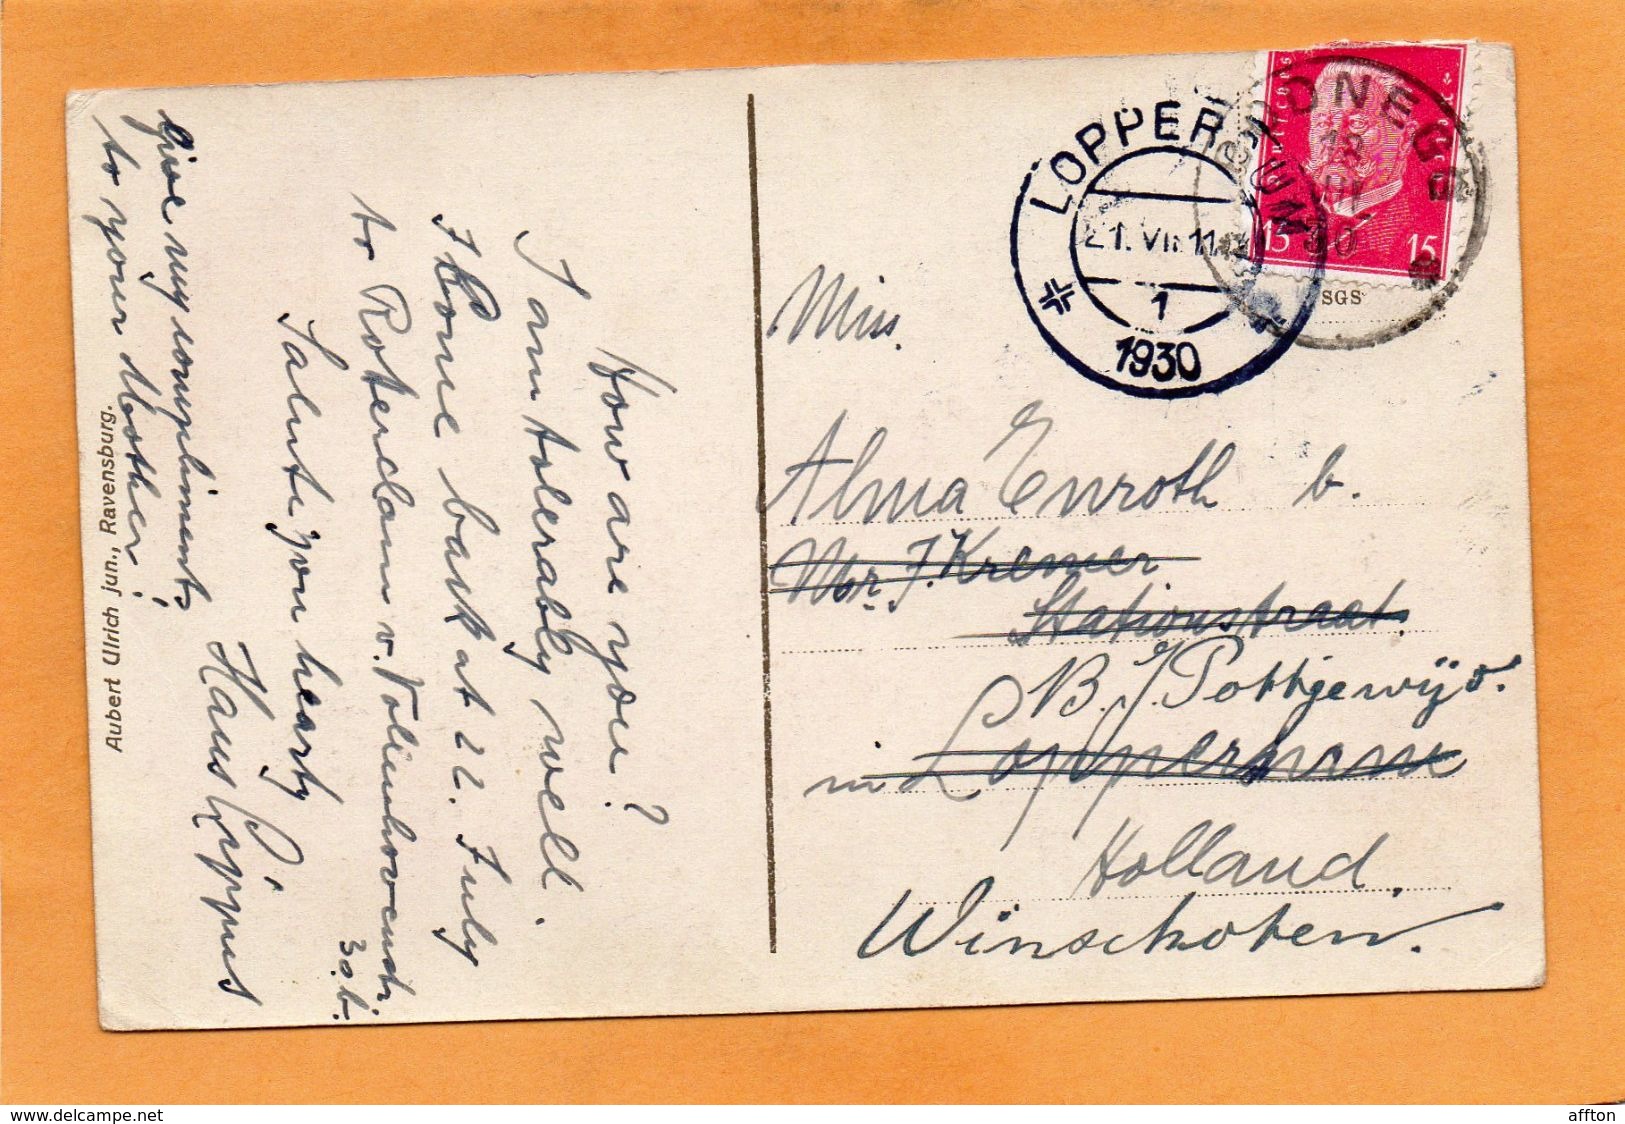 How are you?
I am tolerably well.
I come back at 22. July
to Roterdam v. Vollenhovenstr.
30. b.
Salute you hearty
Hans Grippus
Give my compliments
to your Mother!
Aubert Ulrich jun., Ravensburg.
LOPPERSUM
21. VII 11
1
1930
18
VII
30
15 15
SGS
Miss.
Alma Enroth b.
Mr. J. Kremer
Stationstraat.
B. J. Pottjewijd.
in Loppersum
Holland.
Winschoten.
www.delcampe.net
affton